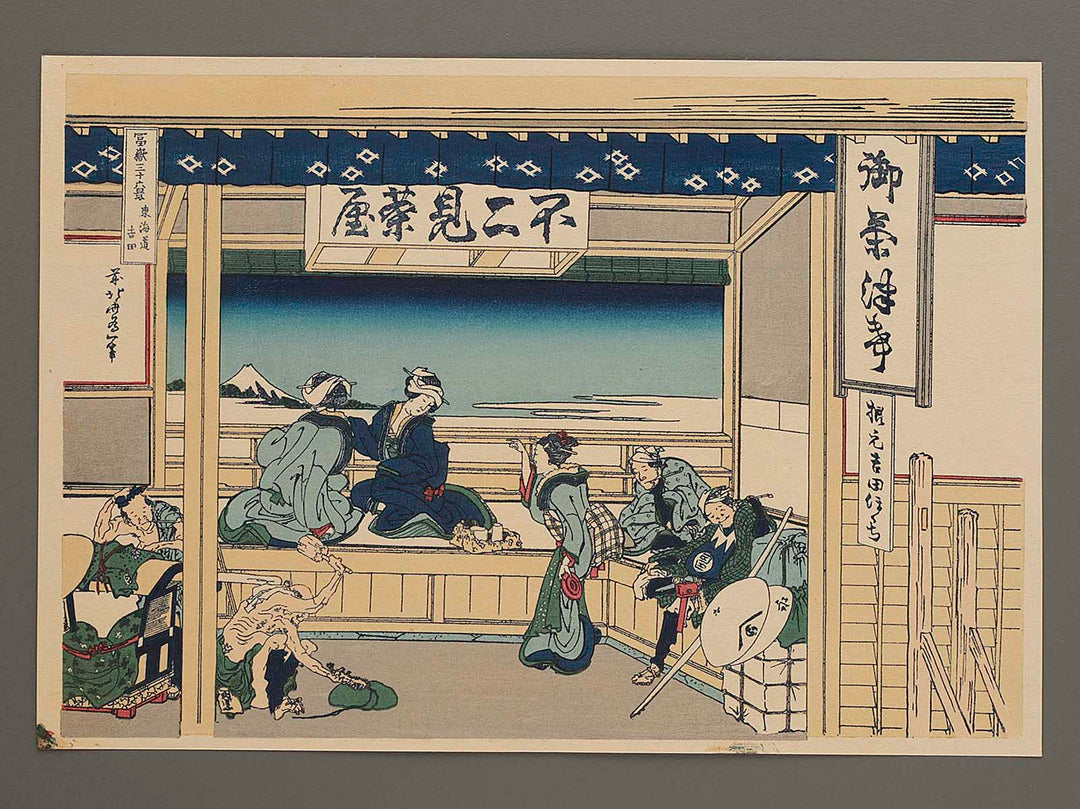 不二見茶屋
御茶津希
根元吉田ほくち
冨嶽三十六景
東海道
吉田
前北斎為一筆